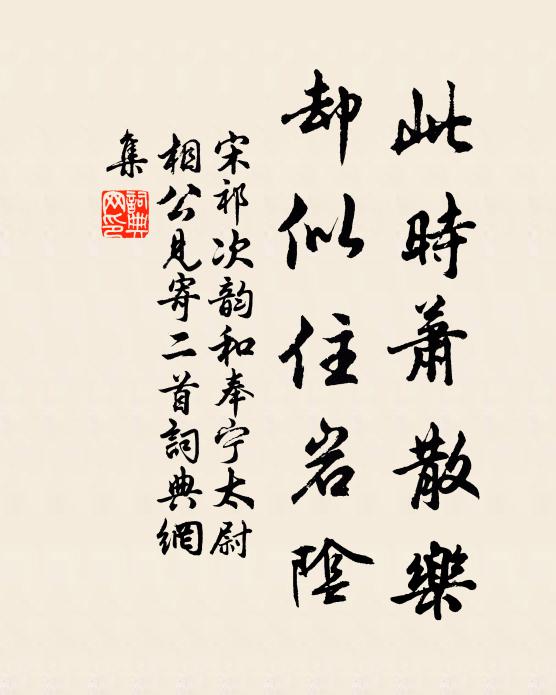 此時蕭散樂
却似住岩陰
宋祁次韵和奉宁太尉
相公見寄二首詞典網
集
詞典
网印